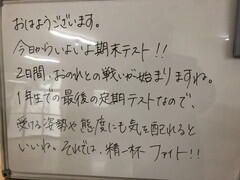 おはようございます。
今日からいよいよ期末テスト！！
2日間、おのれとの戦いが始まりますね。
1年生での最後の定期テストなので、
受ける姿勢や態度にも気を配れると
いいね。それでは、精一杯ファイト！！